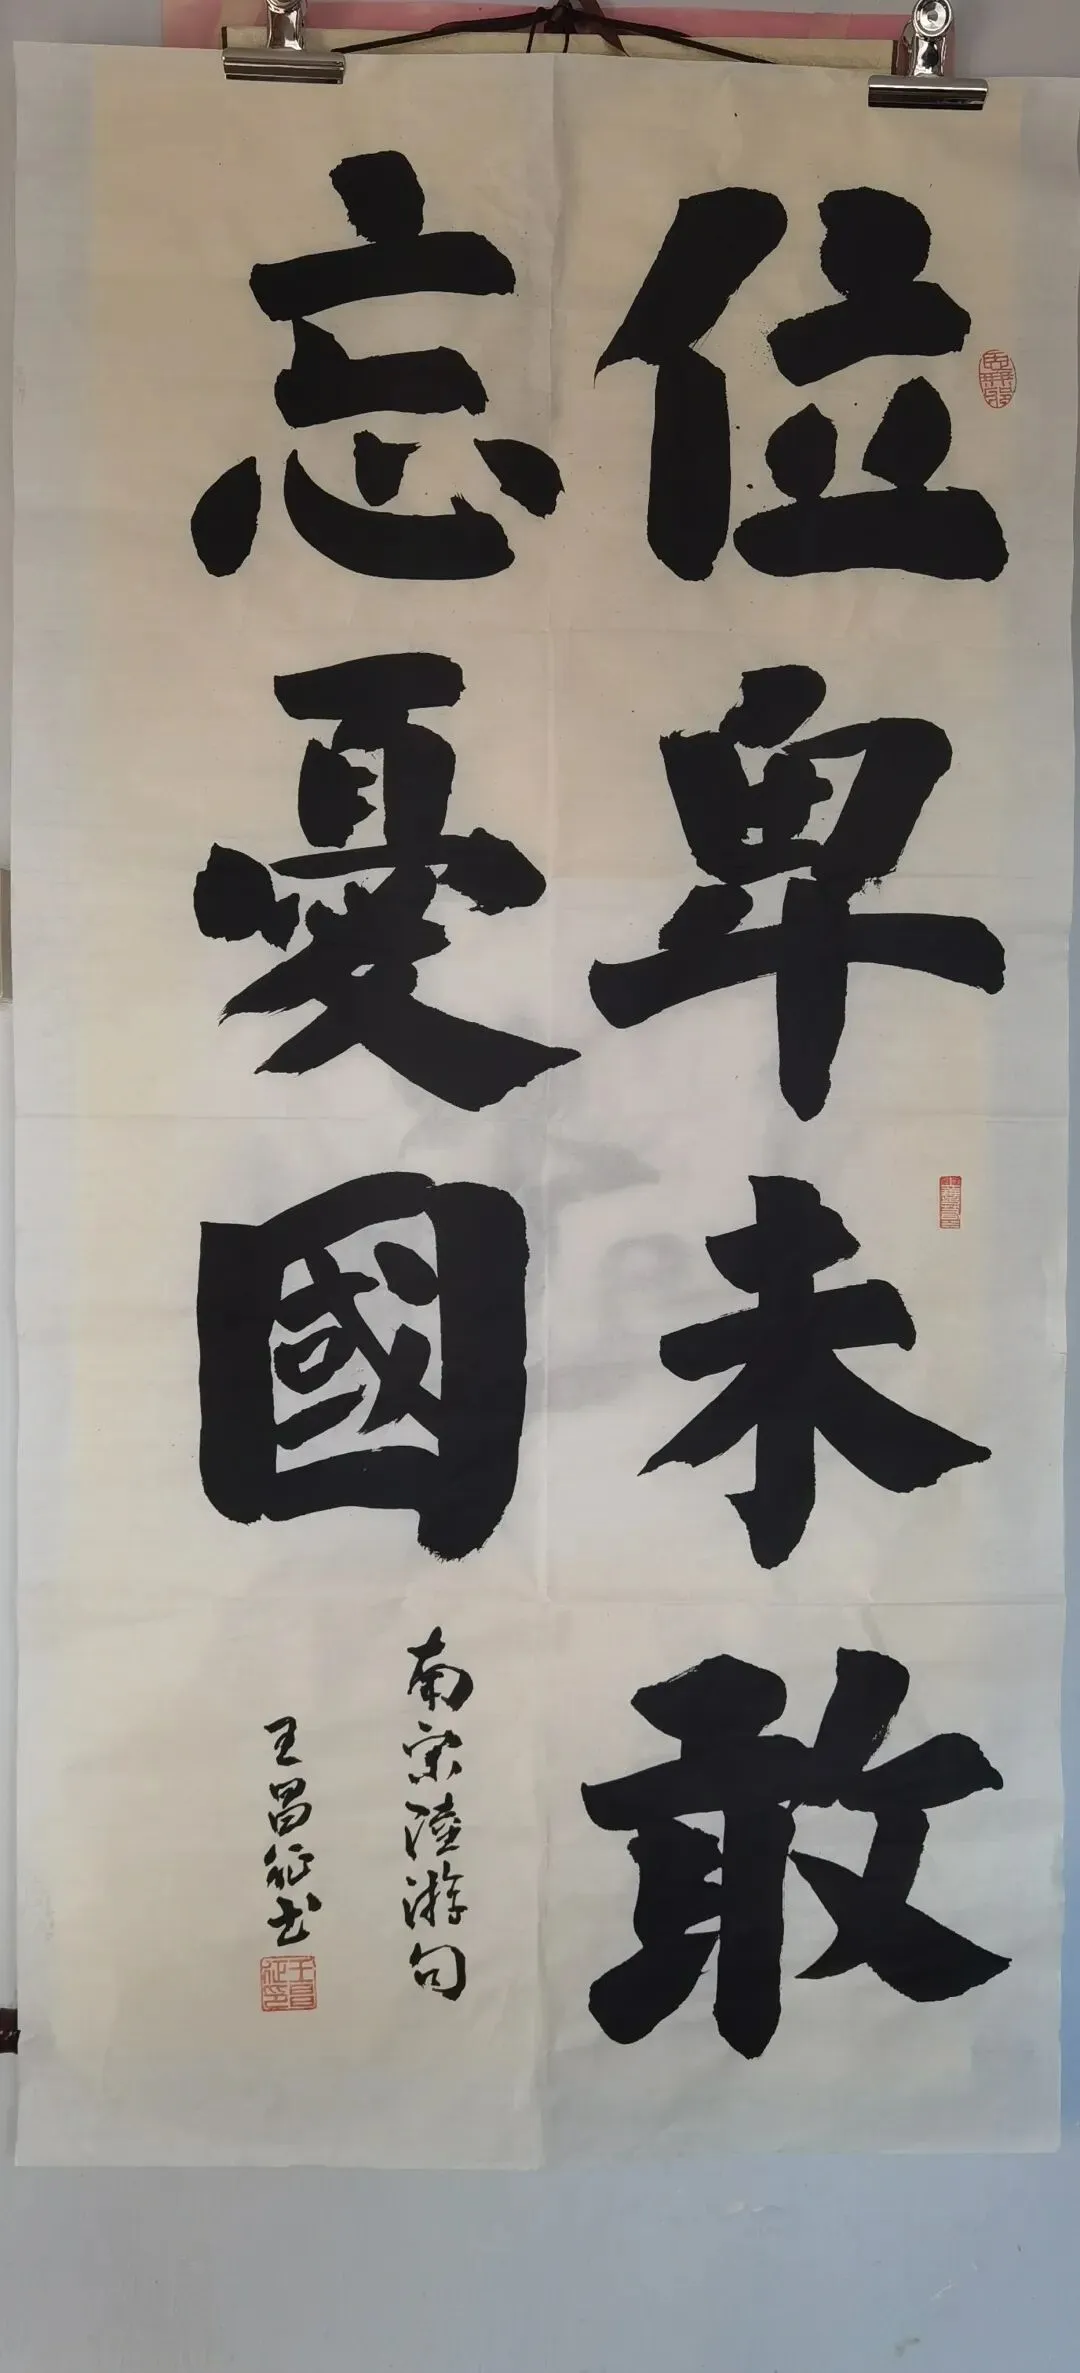 位卑未敢
忘憂國
南宋陸游句
王昌征书
王昌征印